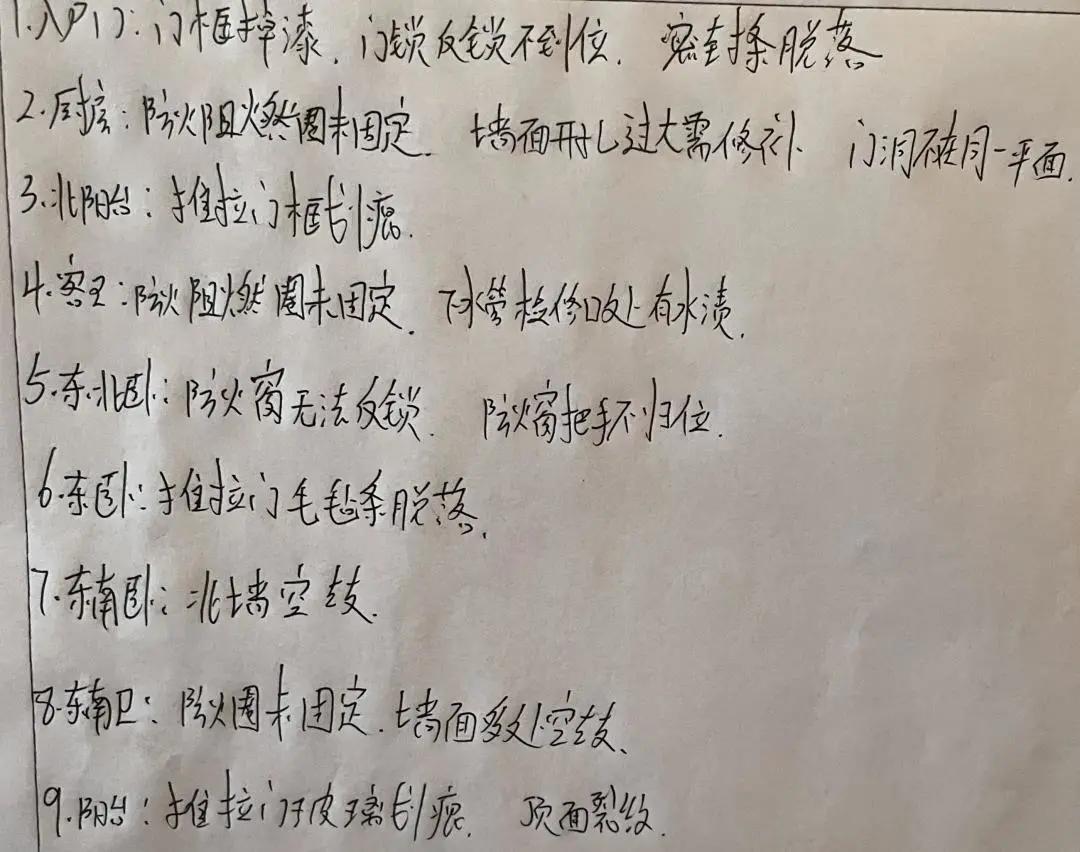 1.入户门：门框掉漆．门锁反锁不到位．密封条脱落
2.厨房：防火阻燃圈未固定．墙面开孔过大需修补．门洞不在同一平面．
3.北阳台：推拉门框划痕．
4.客卫：防火阻燃圈未固定．下水管检修口处有水渍．
5.东北卧：防火窗无法反锁．防火窗把手不归位．
6.东卧：推拉门毛毡条脱落．
7.东南卧：北墙空鼓．
8.东南卫：防火圈未固定．墙面多处空鼓、
9.阳台：推拉门玻璃划痕．顶面裂纹．